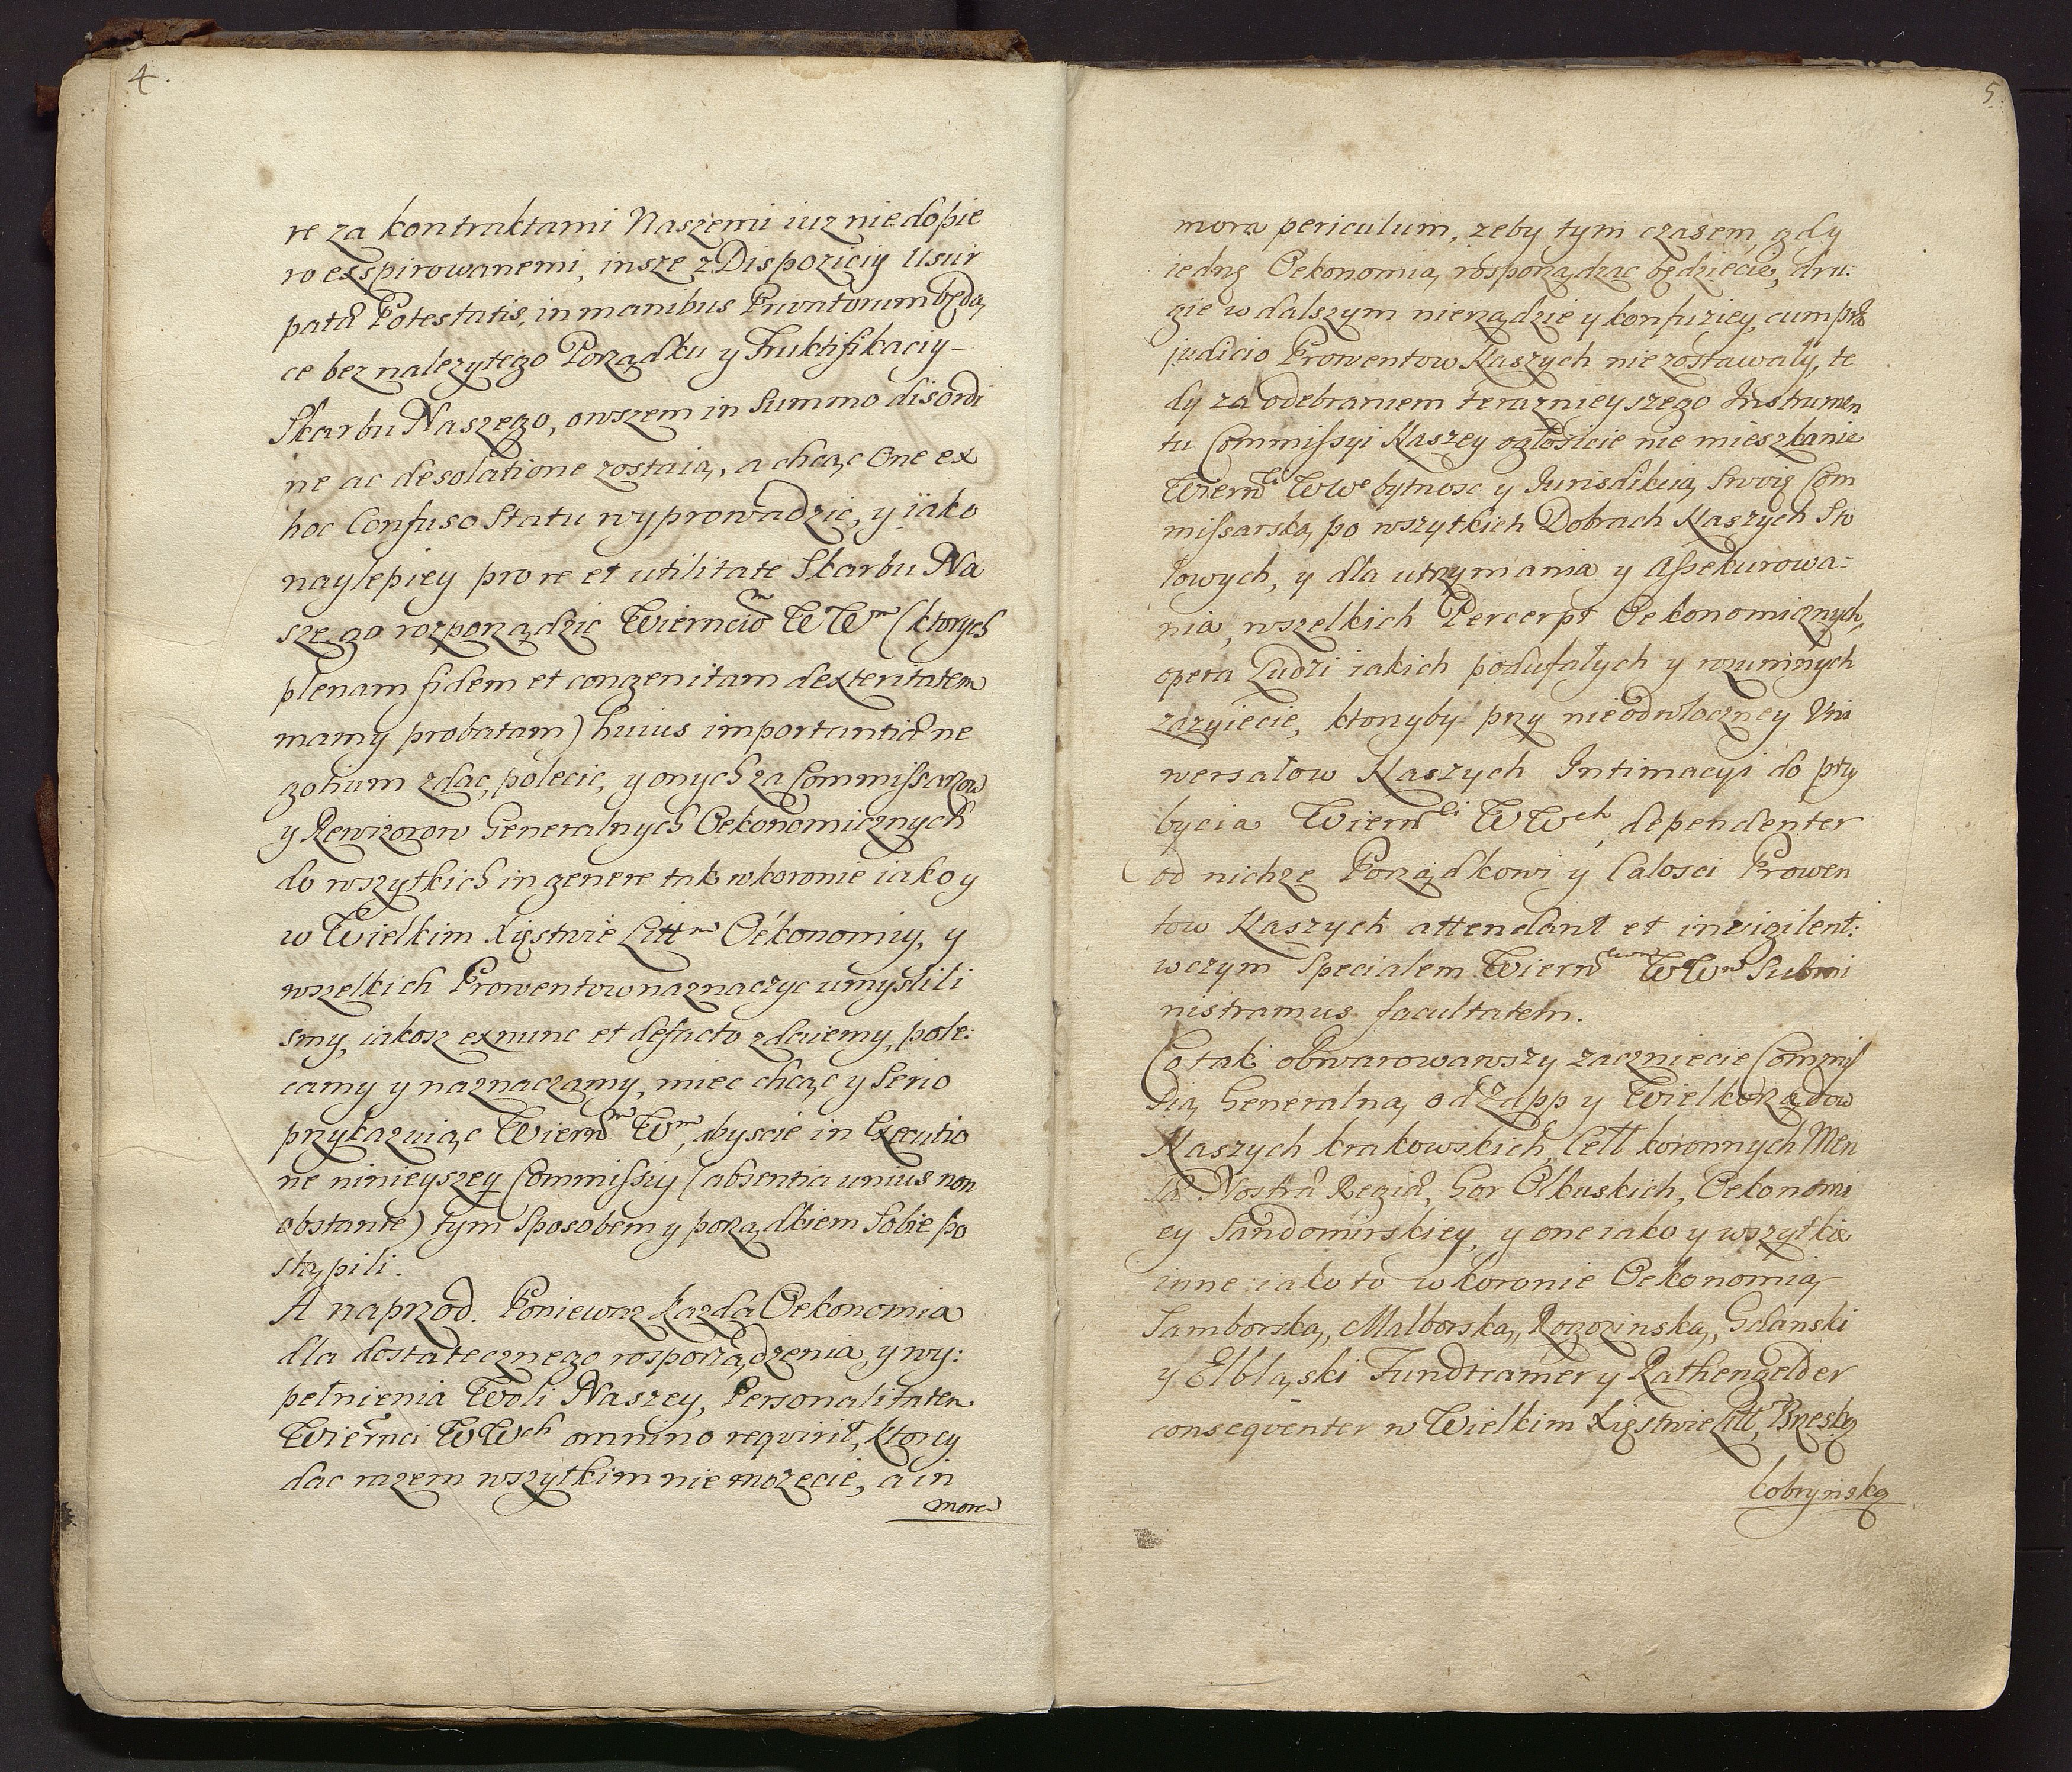 4.
re za kontraktami Naszemi iuz nie dopie
ro exspirowanemi, insze z Dispoziciy Usur
patæ Potestatis, in manibus Privatorum będą,
ce bez nalezytego Porządku y Fruktifikaciy
Skarbu Naszego, owszem in Summo disordi
ne ac desolatione zostaią, a chcąc One ex
hoc Confuso Statu wyprowadzic, y iako
naylepiey pro re et utilitate Skarbu Na
szego rozporządzic Wiernciõ WWm (ktorych
plenam fidem et congenitam dexteritatem
mamy probatam) huius importantiæ ne
gotium zdac, polecic, y onych za Commissarzow
y Rewizorow Generalnych Oekonomicznych
do wszytkich in genere tak w koronie iako y
w Wielkim Xięstwie Litt. Oekonomiy, y
wszelkich Prowentow naznaczyc umyslili
smy, iakosz ex nunc et defacto zdaiemy, pole:
camy y naznaczamy, miec chcąc y Serio
przykazuiąc Wiern Wm, abyscie in Executio
ne ninieyszey Commissiy (absentia unius non
obstante) tym Sposobem y porządkiem Sobie po
stąpili.
A naprzod. Poniewaz kazda Oekonomia
dla dostatecznego rosporządzenia y wy:
pełnienia Woli Naszey, Personalitatem
Wiernci WWch omnino requirit, ktorey
dac razem wszytkim nie mozecie, a in
mora
5.
mora periculum, zeby tym czasem, gdy
iedną Oekonomią, rosporządzac będziecie, dru:
gie w dalszym nierządzie y konfuziey, cum præ
judicio Prowentow Naszych nie zostawały, te
dy za odebraniem terazniejszego Instrumen
tu Commissyi Naszey ogłosicie nie mieszkanie
Wiernci WWe bytnosc y Jurisdikcią Swoię Com
missarską, po wszytkich Dobrach Naszych Sto
łowych, y dla utrzymania y Assekurowa:
nia, wszelkich Percerpt Oekonomicznych,
opera Ludzi iakich podufałych y rozumnych
zazyiecie, ktorzyby przy nieodwłoczney Uni
wersałow Naszych Intimacyi do przy
bycia Wiernci WWch, dependenter
od nichze Porządkowi y Całosci Prowen
tow Naszych attendant et invigilent:
w czym Specialem Wiern WWm Submi
nistramus facultatem.
Co tak obwarowawszy zaczniecie Commis
sią Generalną, od Zupp y Wielkorządow
Naszych krakowskich, Cett koronnych Men
sæ Nostræ Regiæ, Gor Olkuskich, Oekonomi
ey Sandomirskiey, y one iako y wszytkie
inne iako to w koronie Oekonomią
Samborską, Malborską, Rogozinską, Gdanski
y Elbląski Fundtcamer y Rathengelder
consequenter w Wielkim Xięstwie Litt, Brzeską
Cobryńską